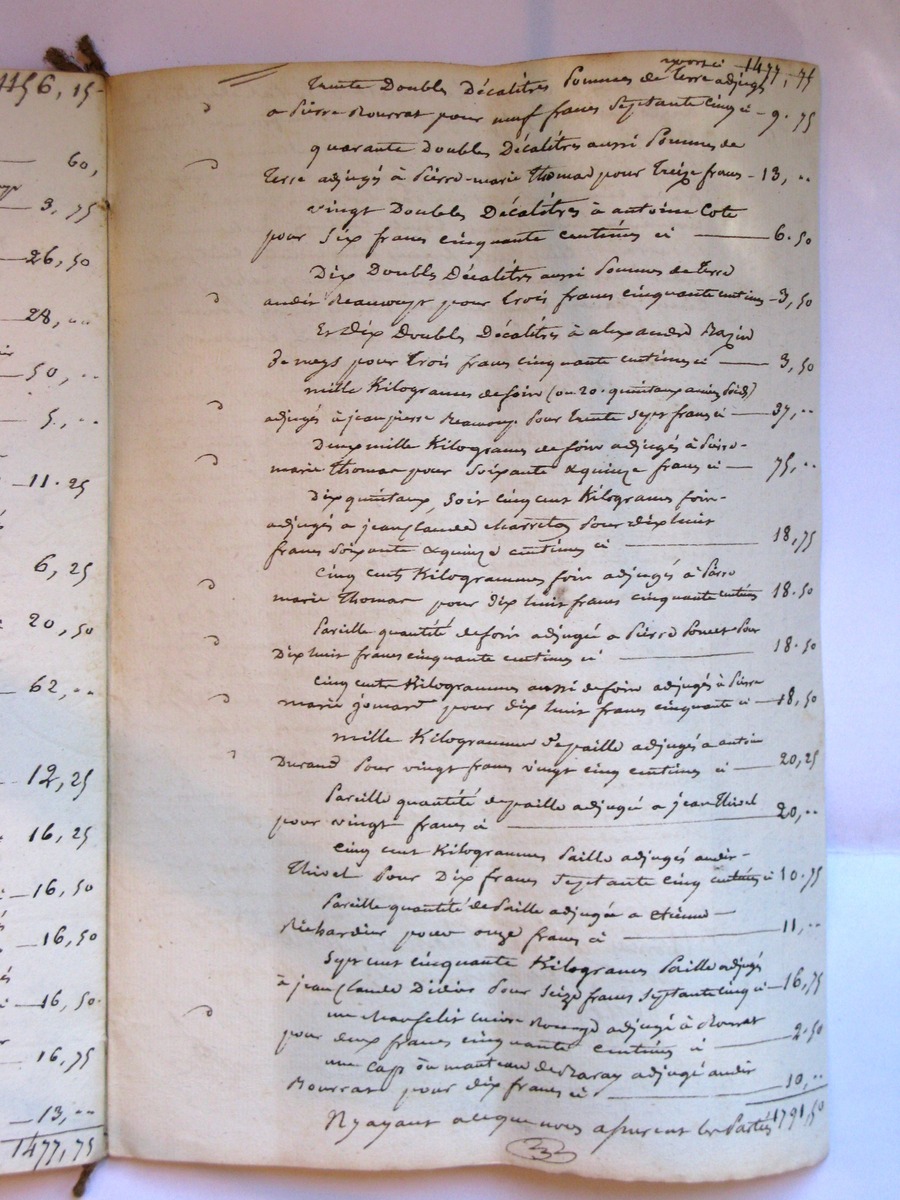 1156, 15
60,
3, 75
26, 50
28, ..
50, ..
5, ..
11. 25
6, 25
20, 50
62, ..
12, 25
16, 25
16, 50
16, 50
16, 50.
16, 75
13, ..
1477, 75
report ci 1477, 75
Trente Doubles Décalitres Pommes de Terre adjugé
a Pierre Mourrat pour neuf francs Septante Cinq ci - 9. 75
quarante Doubles Décalitres aussi Pommes de
Terre adjugés à Pierre-marie Thomas pour Treize francs - 13, ..
vingt Doubles Décalitres à antoine Cote
pour Six francs cinquante centimes ci 6. 50
Dix Doubles Décalitres aussi Pommes de Terre
audit Beaucoup pour trois francs cinquante centimes - 3, 50
Et Dix Doubles Décalitres à alexandre Bazin
pour Trois francs cinquante centimes ci 3, 50
mille Kilogrames de foin (ou 20. quintaux ancien Poids)
adjugés à jean pierre Beaucoup Pour Trente Sept francs ci 37, ..
Deux mille Kilogrames de foin adjugés à Pierre-
marie Thomas pour Soixante & quinze francs ci 75, ..
Dix quintaux, Soit cinq cent Kilogrames foin-
adjugés a jean Claude Charreton Pour Dix huit
francs Soixante & quinze centimes ci 18, 75
Cinq cents Kilogrammes foin adjugés à Pierre
marie Thomas pour Dix huit francs cinquante centimes 18. 50
Pareille quantité de foin adjugée a Pierre Poncet Pour
Dix huit francs cinquante centimes ci 18. 50
Cinq cents Kilogrammes aussi de foin adjugés à Pierre
marie jomard pour dix huit francs cinquante ci 18, 50
mille Kilogrammes de paille adjugés a antoine
Durand Pour vingt francs vingt cinq centimes ci 20, 25
Pareille quantité de paille adjugée a jean Thivel
pour vingt francs ci 20, ..
Cinq cent Kilogrammes Paille adjugés audit-
Thivel Pour Dix francs Septante Cinq centimes ci 10. 75
Pareille quantité de Paille adjugée a etienne
Richardier pour onze francs ci 11, ..
Sept cent cinquante Kilogrames Paille adjugés
à jean Claude Didier Pour Seize francs Septante cinq ci 16, 75
une cuivre Rouge adjugé à Mourrat
pour deux francs cinquante centimes ci 2. 50
une Cape ou manteau de adjugé audit
Mourrat pour dix francs ci 10, ..
N'y ayant a ceque nous assurent les Parties 1791, 50